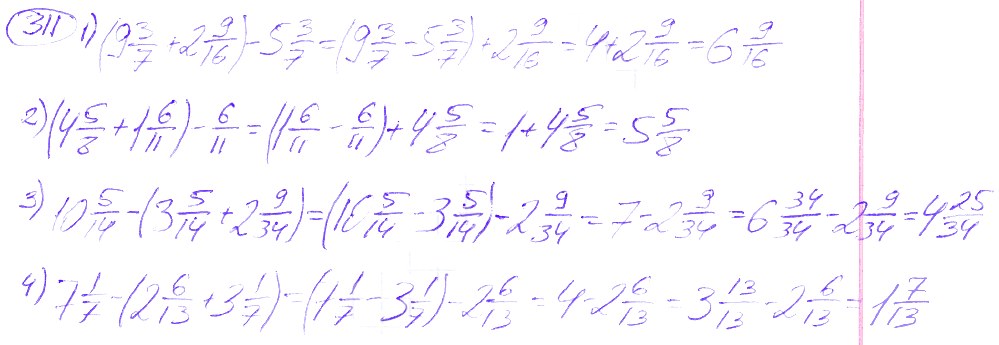 311 1) (9 3/7 + 2 9/16) - 5 3/7 = (9 3/7 - 5 3/7) + 2 9/16 = 4 + 2 9/16 = 6 9/16
2) (4 5/8 + 1 6/11) - 6/11 = (1 6/11 - 6/11) + 4 5/8 = 1 + 4 5/8 = 5 5/8
3) 10 5/14 - (3 5/14 + 2 9/34) = (10 5/14 - 3 5/14) - 2 9/34 = 7 - 2 9/34 = 6 34/34 - 2 9/34 = 4 25/34
4) 7 1/7 - (2 6/13 + 3 1/7) = (7 1/7 - 3 1/7) - 2 6/13 = 4 - 2 6/13 = 3 13/13 - 2 6/13 = 1 7/13